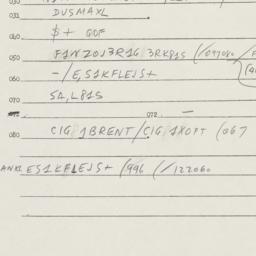 030
031 DVSMAXL
040 $+ GOF
050 F1NZOJ3R1G 3RK81S (/097060
060 -/E,S1KFLEJS+
070 SA,L81S
072 —
080 CIG 1BRENT/CIG 1XOPT (067
ANKL ES1KFLEJS+ (996 (/122060